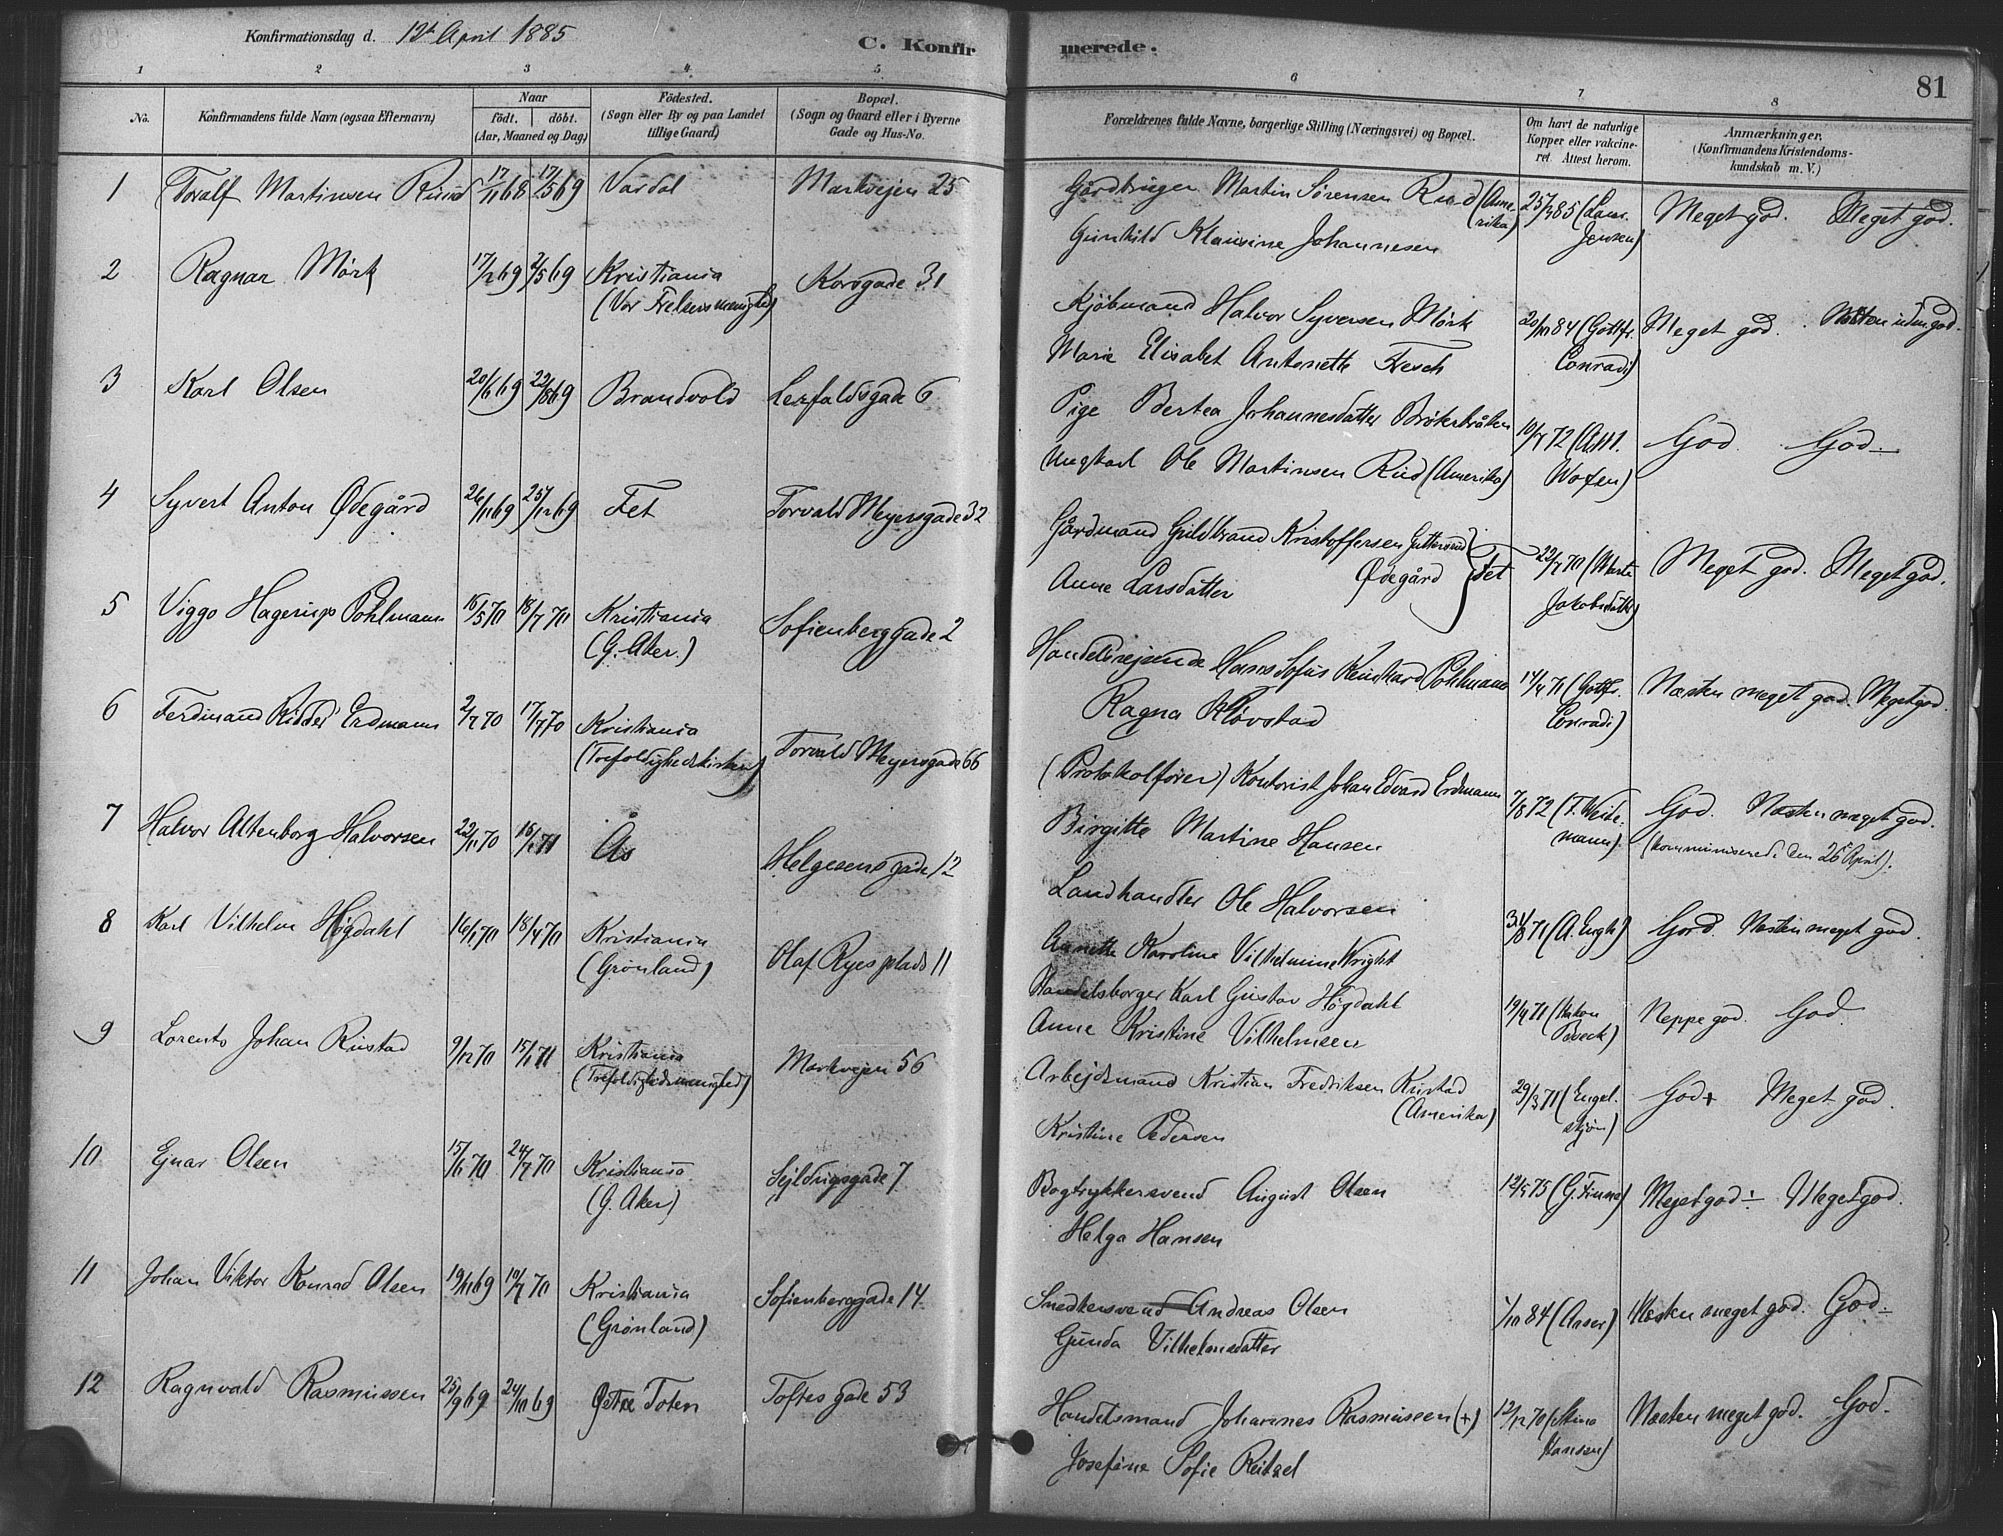 Konfirmationsdag d. 12te April 1885
C. Konfirmerede.
81
1 2 3 4 5 6 7 8
No.
Konfirmandens fulde Navn (ogsaa Efternavn)
Naar
født. døbt.
(Aar, Maaned og Dag)
Födested.
(Sogn eller By og paa Landet
tillige Gaard)
Bopæl.
(Sogn og Gaard eller i Byerne
Gade og Hus-No.
Forældrenes fulde Navne, borgerlige Stilling (Næringsvei) og Bopæl.
Om havt de naturlige
Kopper eller vakcine-
ret. Attest herom.
Anmærkninger.
(Konfirmandens Kristendoms-
kundskab m. V.)
1 Toralf Martinsen Ruud 17/11 68 17/5 69 Vardal Markvejen 25
Gårdbruger Martin Sørensen Rud (Amerika) 25/3 85 (Laur. Jensen) Meget god. Meget god.
Gunhild Klausine Johannesen
2 Ragnar Mørk 17/2 69 2/5 69 Kristiania Korsgade 31
(Vor Frelsers menighed)
Kjøbmand Halvor Syversen Mørk 20/10 84 (Gottfr. Conradi) Meget god. Næsten udm. god.
Marie Elisabet Antonette Fesch
3 Karl Olsen 20/6 69 22/8 69 Brandvold Lerfaldsgade 6
Pige Bertea Johannesdatter Brøkerbråten 10/7 72 (Ass. Woxen) God God
Ungkarl Ole Martinsen Rud (Amerika)
4 Syvert Anton Ødegård 26/11 69 25/12 69 Fet Torvald Meyersgade 32
Gårdmand Guldbrand Kristoffersen Guttersrud Ødegård Fet 22/7 70 (Marte Jakobsdatter) Meget god. Meget god.
Anne Larsdatter
5 Viggo Hagerup Pohlmann 16/5 70 18/7 70 Kristiania Sofienberggade 2
(G. Aker.)
Handelsrejsende Hans Sofus Reinhard Pohlmann 14/4 71 (Gottfr. Conradi) Næsten meget god. Meget god.
Ragna Kløvstad
6 Ferdinand Ridder Erdmann 2/7 70 17/7 70 Kristiania Torvald Meyersgade 66
(Trefoldighedskirken)
(Protokolfører) Kontorist Johan Edvard Erdmann 7/8 72 (F. Weidemann) God. Næsten meget god.
Birgitte Martine Hansen (kommunicerede den 26 April).
7 Halvor Altenborg Halvorsen 22/11 70 16/1 71 Ås Helgesens gade 12
Landhandler Ole Halvorsen 31/8 71 (A. Engh) God. Næsten meget god.
Annette Karoline Vilhelmine Wright
8 Karl Vilhelm Høgdahl 16/1 70 18/4 70 Kristiania Olaf Ryes plads 11
(Grønland)
Handelsborger Karl Gustav Høgdahl 19/4 71 (Hakon Boeck) Neppe god. God
Anne Kristine Vilhelmsen
9 Lorents Johan Rustad 9/12 70 15/1 71 Kristiania Markvejen 56
(Trefoldighedsmenighed)
Arbejdsmand Kristian Fredriksen Rustad (Amerika) 29/3 71 (Engelskjøn) God + Meget god.
Kristine Pedersen
10 Ejnar Olsen 15/6 70 24/7 70 Kristiania Sejldugsgade 7
(G. Aker)
Bogtrykkersvend August Olsen 12/5 75 (G. Finne) Meget god ÷ Meget god.
Helga Hansen
11 Johan Viktor Konrad Olsen 19/11 69 10/7 70 Kristiania Sofienberggade 14
(Grønland)
Snedkersvend Andreas Olsen 1/10 84 (Asser) Næsten meget god. God ÷
Gunda Vilhelmsdatter
12 Ragnvald Rasmussen 25/9 69 24/10 69 Østre Toten Toftes gade 53
Handelsmand Johannes Rasmussen (+) 12/12 70 (Stina Hansen) Næsten meget god. God.
Josefine Sofie Reitzel